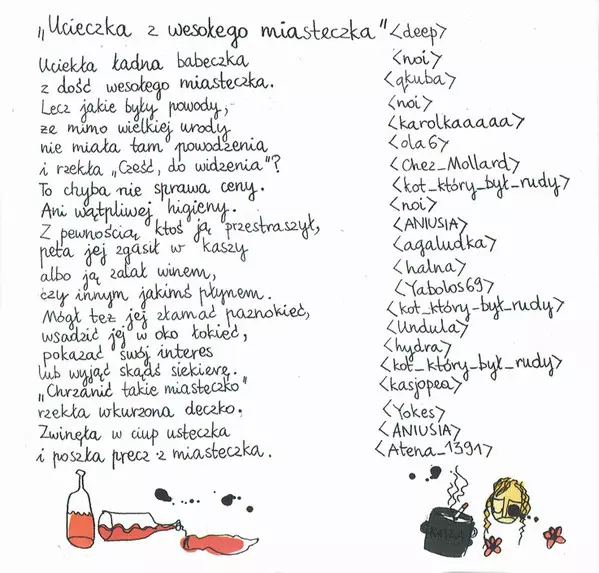 „Ucieczka z wesołego miasteczka" <deep>
Uciekła ładna babeczka <noi>
z dość wesołego miasteczka. <qkuba>
Lecz jakie były powody, <noi>
że mimo wielkiej urody <karolkaaaaa>
nie miała tam powodzenia <ola6>
i rzekła „Cześć, do widzenia"? <Chez_Mollard>
To chyba nie sprawa ceny. <kot_który_był_rudy>
Ani wątpliwej higieny. <noi>
Z pewnością ktoś ją przestraszył, <ANIUSIA>
peta jej zgasił w kaszy <agaludka>
albo ją zalał winem, <halna>
czy innym jakimś płynem. <Yabolos69>
Mógł też jej złamać paznokieć, <kot_który_był_rudy>
wsadzić jej w oko łokieć, <Undula>
pokazać swój interes <hydra>
lub wyjąć skądś siekierę. <kot_który_był_rudy>
„Chrzanić takie miasteczko" <kasjopea>
rzekła wkurzona deczko. <Yokes>
Zwinęła w ciup usteczka <ANIUSIA>
i poszła precz z miasteczka. <Atena_1391>
KASZA